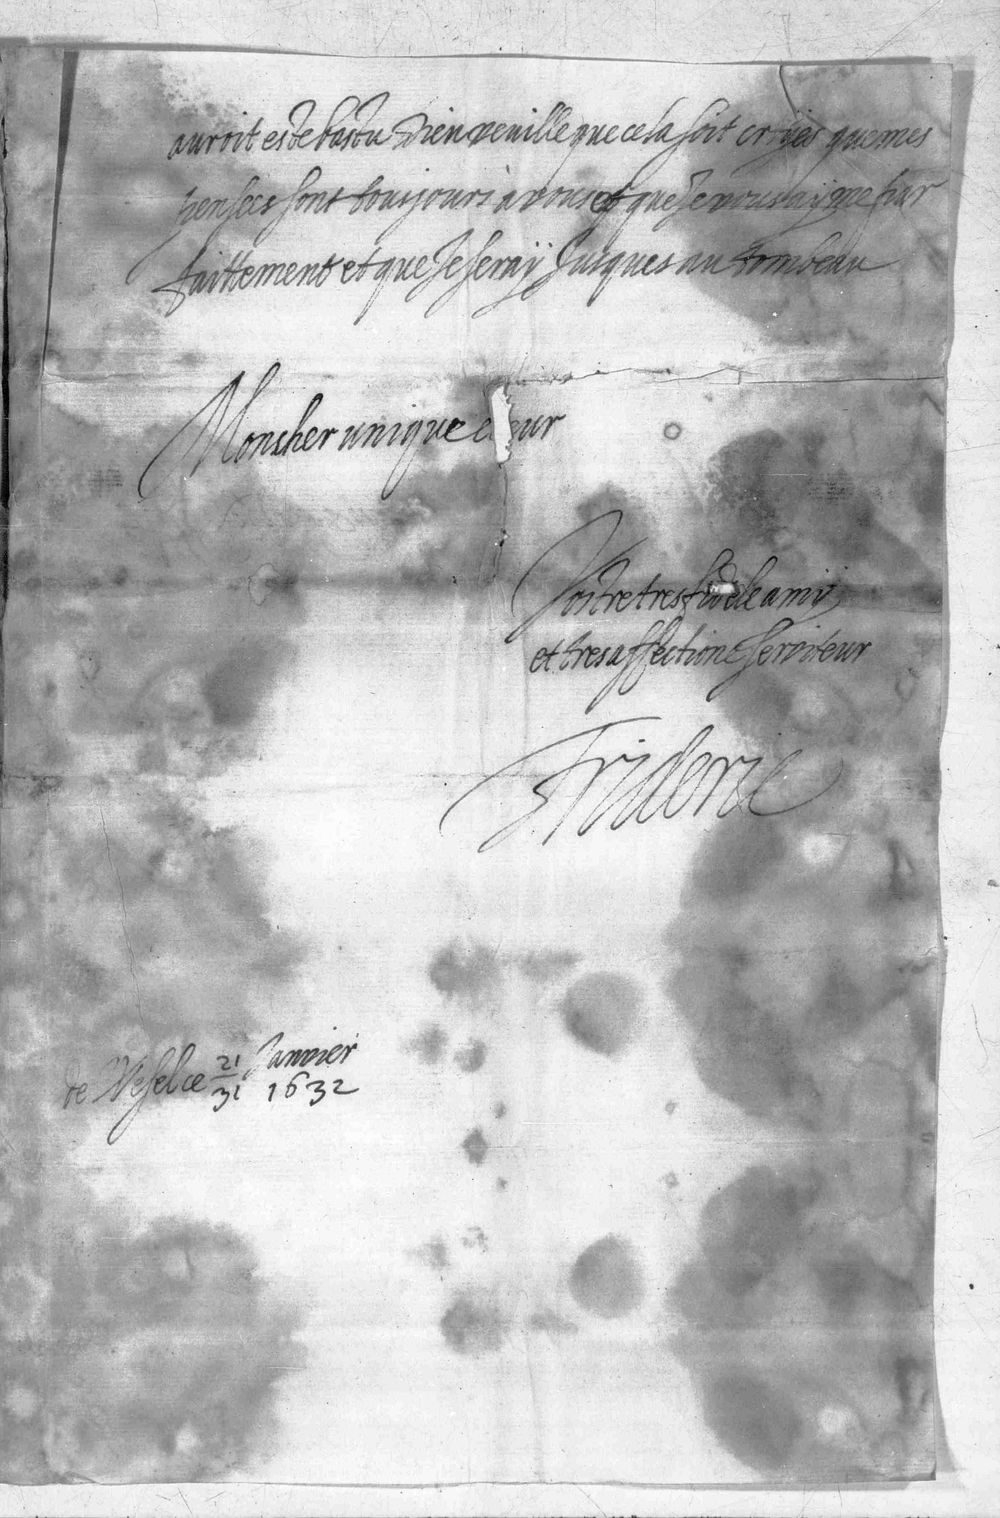 auroit este bastu Dieu veuille que cela soit croyes que mes
pensees sont tousjours a vous et que Je vous ayme par
faittement et que Je seray Jusques au tombeau
Mon cher unique cœur
Vostre tres fidele amy
et tres affectioné serviteur
Frideric
de Vesel ce 21/31 Janvier
1632